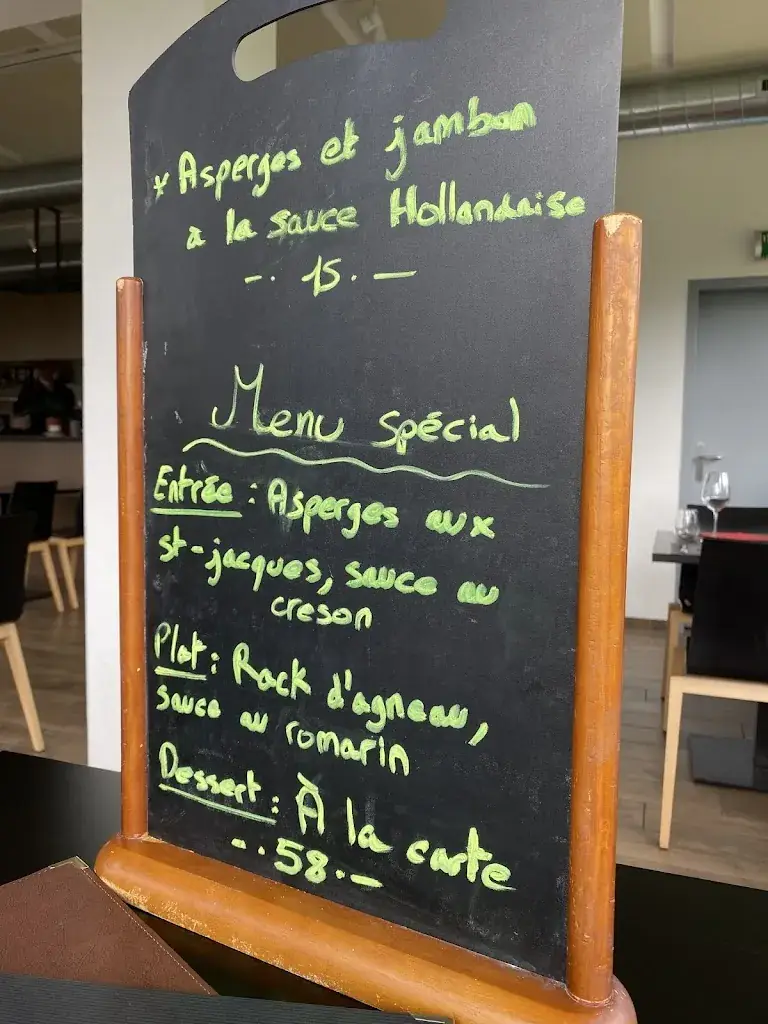 * Asperges et jambon
à la sauce Hollandaise
-. 15. -
Menu spécial
Entrée : Asperges aux
st-jacques, sauce au
creson
Plat : Rack d'agneau,
sauce au romarin
Dessert : À la carte
-. 58. -